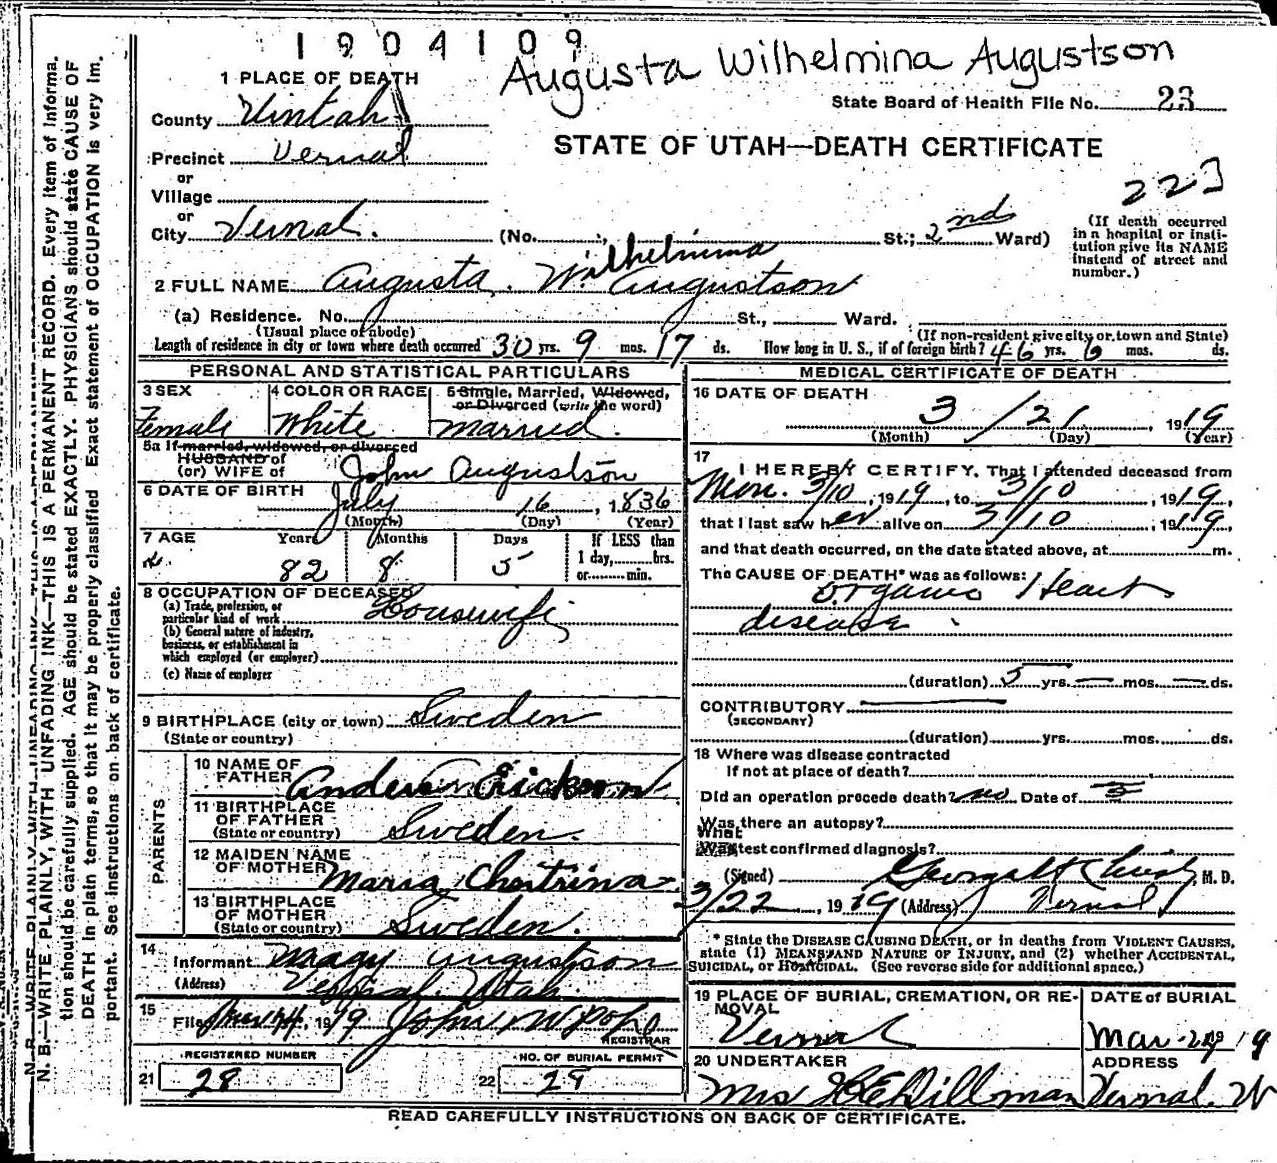 1904109
Augusta Wilhelmina Augustson
1 PLACE OF DEATH
State Board of Health File No. 23
County Uintah
STATE OF UTAH—DEATH CERTIFICATE
Precinct Vernal
223
or
Village
or
City Vernal. (No. St.; 2nd Ward)
(If death occurred in a hospital or institution give its NAME instead of street and number.)
2 FULL NAME Augusta Wilhelmina Augustson
(a) Residence. No. St., Ward.
(Usual place of abode) (If non-resident give city or town and State)
Length of residence in city or town where death occurred 30 yrs. 9 mos. 17 ds. How long in U. S., if of foreign birth? 46 yrs. 6 mos. ds.
PERSONAL AND STATISTICAL PARTICULARS
3 SEX Female
4 COLOR OR RACE White
5 Single, Married, Widowed, or Divorced (write the word) Married.
5a If married, widowed, or divorced
HUSBAND of
(or) WIFE of John Augustson
6 DATE OF BIRTH July 16, 1836
(Month) (Day) (Year)
7 AGE Years Months Days If LESS than
82 8 5 1 day, hrs.
or min.
8 OCCUPATION OF DECEASED
(a) Trade, profession, or particular kind of work Housewife
(b) General nature of industry, business, or establishment in which employed (or employer)
(c) Name of employer
9 BIRTHPLACE (city or town) Sweden
(State or country)
PARENTS
10 NAME OF FATHER Anders Erickson
11 BIRTHPLACE OF FATHER (State or country) Sweden.
12 MAIDEN NAME OF MOTHER Maria
13 BIRTHPLACE OF MOTHER (State or country) Sweden.
14
Informant Augustson
(Address) Vernal, Utah.
15
Filed 1919 John N Pope
REGISTRAR
REGISTERED NUMBER
21 28
NO. OF BURIAL PERMIT
22 29
MEDICAL CERTIFICATE OF DEATH
16 DATE OF DEATH
3 / 21 1919
(Month) (Day) (Year)
17
I HEREBY CERTIFY, That I attended deceased from
3/10, 1919, to 3/10, 1919,
that I last saw her alive on 3/10, 1919,
and that death occurred, on the date stated above, at m.
The CAUSE OF DEATH* was as follows:
Organic Heart
disease.
(duration) 5 yrs. — mos. — ds.
CONTRIBUTORY
(SECONDARY)
(duration) yrs. mos. ds.
18 Where was disease contracted
If not at place of death?
Did an operation precede death? no Date of
Was there an autopsy?
What test confirmed diagnosis?
(Signed) M. D.
3/22, 1919 (Address) Vernal
* State the DISEASE CAUSING DEATH, or in deaths from VIOLENT CAUSES,
state (1) MEANS AND NATURE OF INJURY, and (2) whether ACCIDENTAL,
SUICIDAL, or HOMICIDAL. (See reverse side for additional space.)
19 PLACE OF BURIAL, CREMATION, OR REMOVAL
Vernal
DATE of BURIAL
20 UNDERTAKER
Mrs Dillman
ADDRESS
Vernal.
READ CAREFULLY INSTRUCTIONS ON BACK OF CERTIFICATE.
N. B.—WRITE PLAINLY, WITH UNFADING INK—THIS IS A PERMANENT RECORD. Every item of Informa-
tion should be carefully supplied. AGE should be stated EXACTLY. PHYSICIANS should state CAUSE OF
DEATH in plain terms, so that it may be properly classified. Exact statement of OCCUPATION is very im-
portant. See instructions on back of certificate.